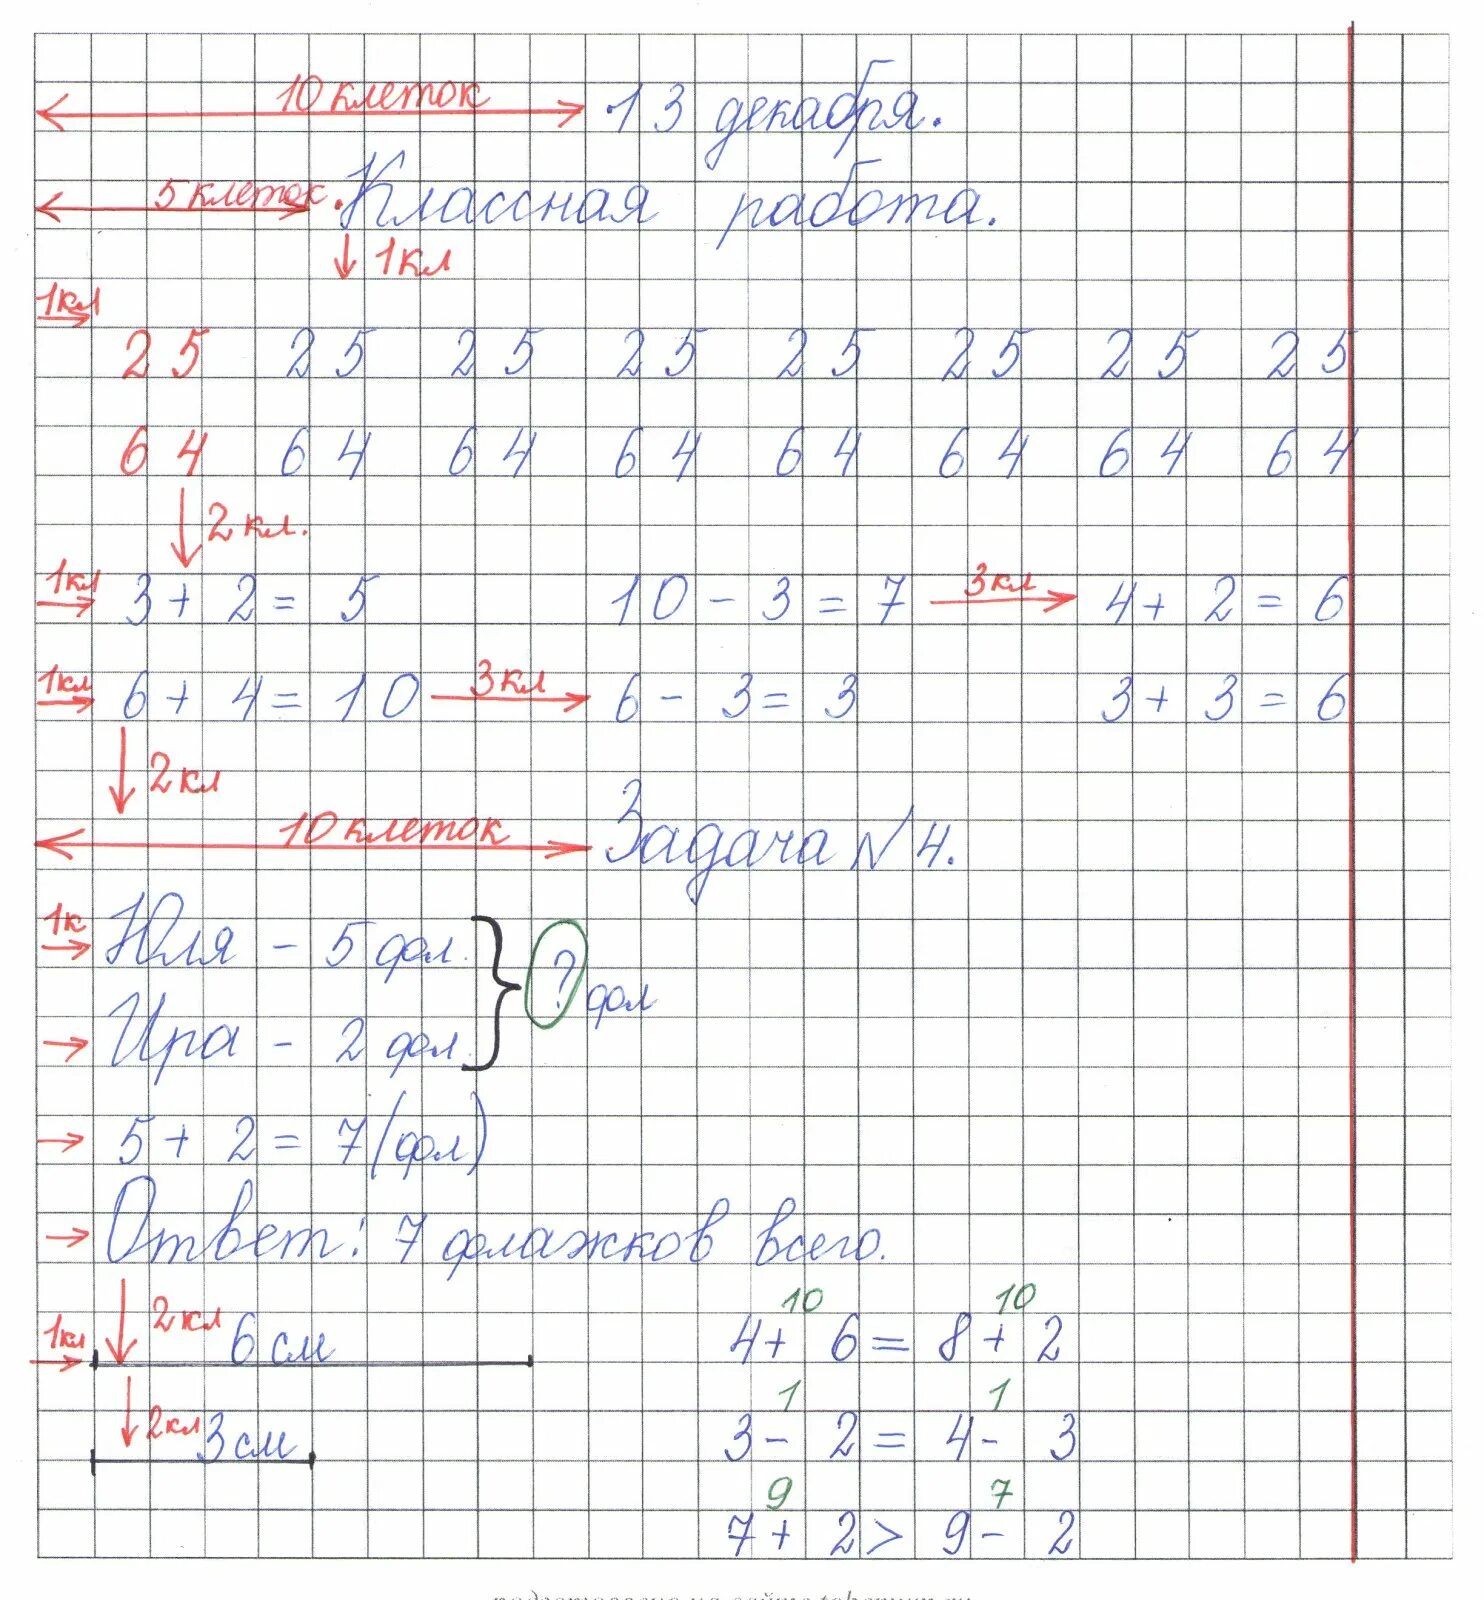 10 клеток 13 декабря.
5 клеток. Классная работа.
1кл
1кл
25 25 25 25 25 25 25 25
64 64 64 64 64 64 64 64
2 кл.
1кл 3 + 2 = 5 10 - 3 = 7 3кл 4 + 2 = 6
1кл 6 + 4 = 10 3кл 6 - 3 = 3 3 + 3 = 6
2 кл
10 клеток Задача №4.
1к Юля - 5 фл. } ? фл
Ира - 2 фл.
5 + 2 = 7 (фл)
Ответ: 7 флажков всего.
2кл 10 10
1кл 6 см 4 + 6 = 8 + 2
1 1
2кл 3 см 3 - 2 = 4 - 3
9 7
7 + 2 > 9 - 2